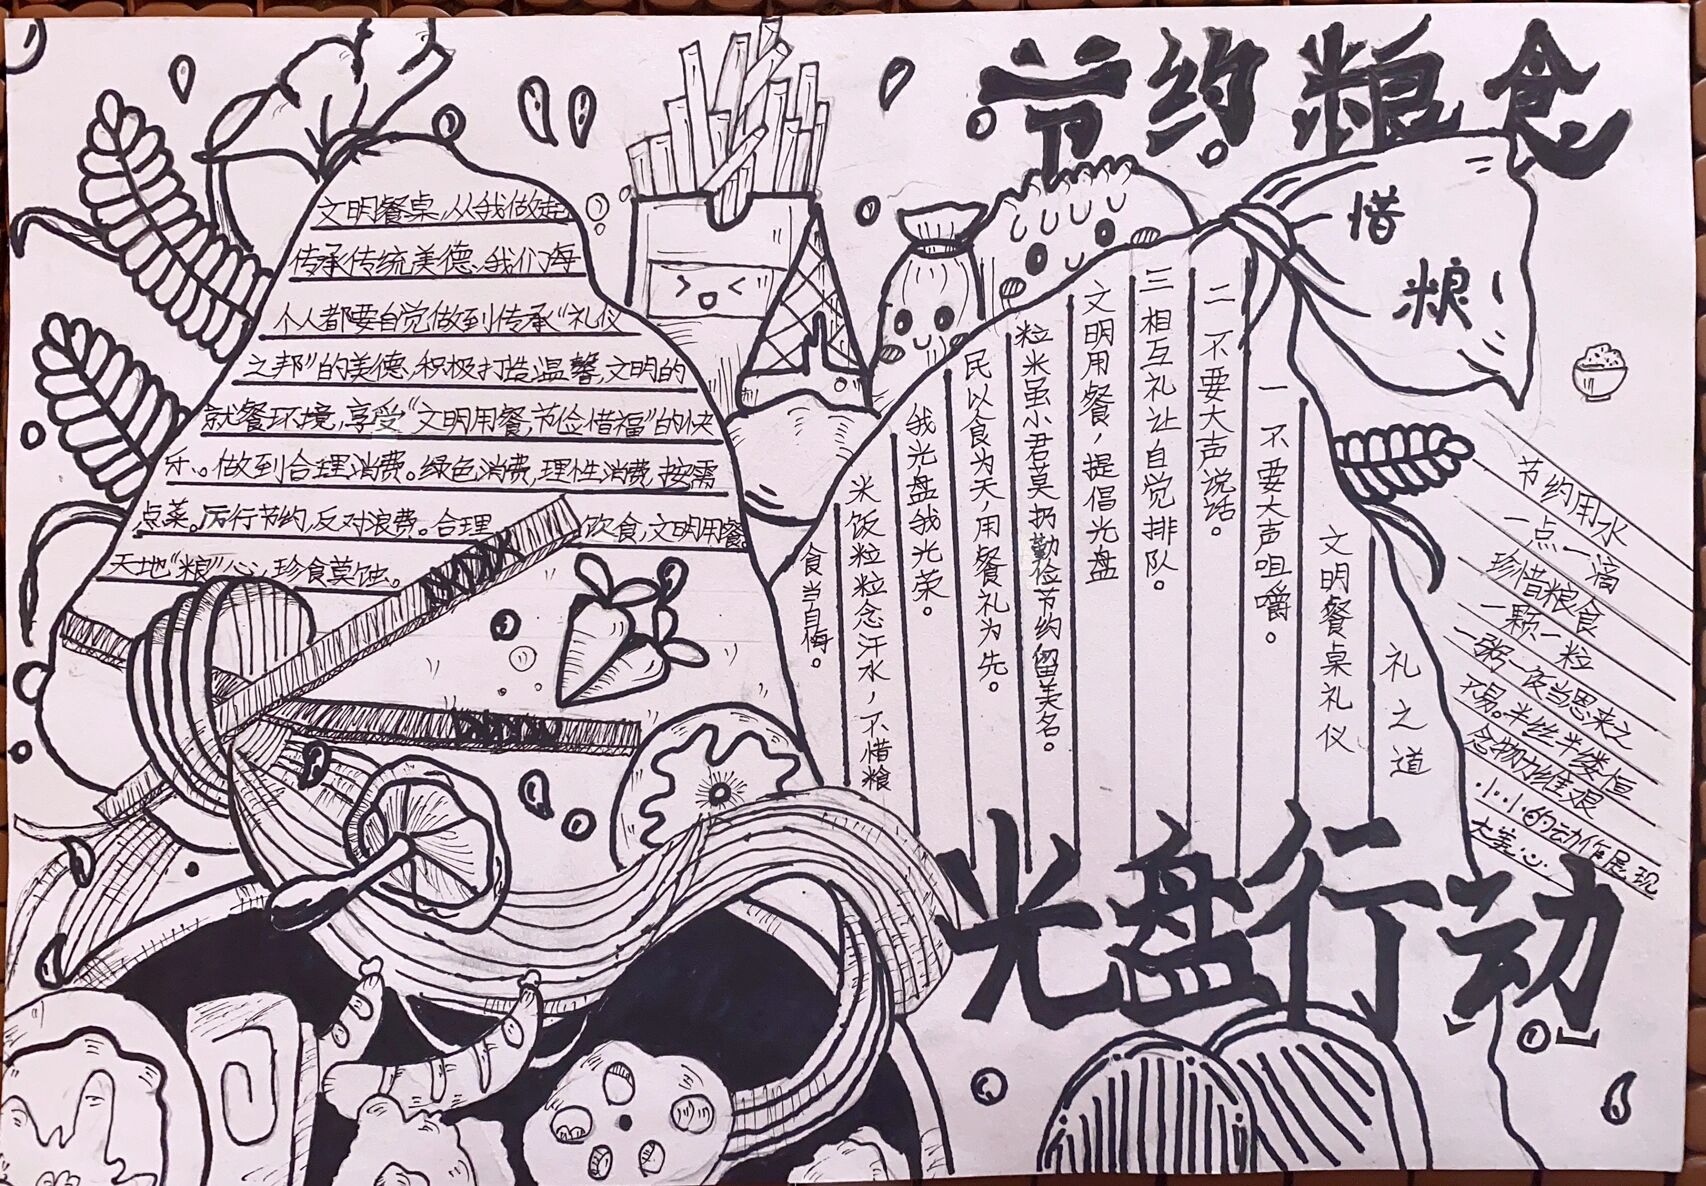 节约粮食
惜
粮
文明餐桌,从我做起
传承传统美德、我们每
个人都要自觉做到传承“礼仪
之邦”的美德、积极打造温馨,文明的
就餐环境,享受“文明用餐,节俭惜福”的快
乐、。做到合理消费。绿色消费,理性消费,按需
点菜。厉行节约,反对浪费。合理饮食,文明用餐。
天地“粮”心、珍食莫蚀。
礼之道
文明餐桌礼仪
一不要大声咀嚼。
二不要大声说话。
三相互礼让自觉排队。
文明用餐,提倡光盘
粒米虽小君莫扔勤俭节约留美名。
民以食为天,用餐礼为先。
我光盘我光荣。
米饭粒粒念汗水,不惜粮
食当自悔。
节约用水
一点一滴
珍惜粮食
一颗一粒
一粥一夜当思来之
不易。半丝半缕恒
念物力维艰
小小的动作展现
大美心
光盘行动